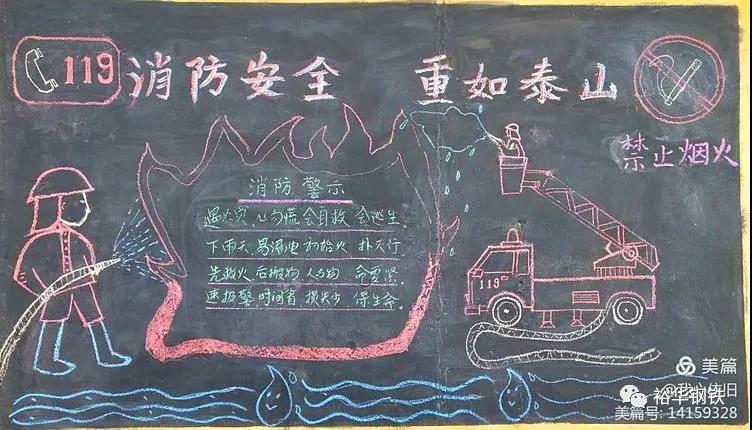 119 消防安全 重如泰山
禁止烟火
消防警示
遇火灾 心勿慌 会自救 会逃生
下雨天 易漏电 初始火 扑灭行
先救火 后搬物 人与物 命要紧
速报警 时间省 损失少 保生命
119
美篇
裕华钢铁
美篇号: 14159328